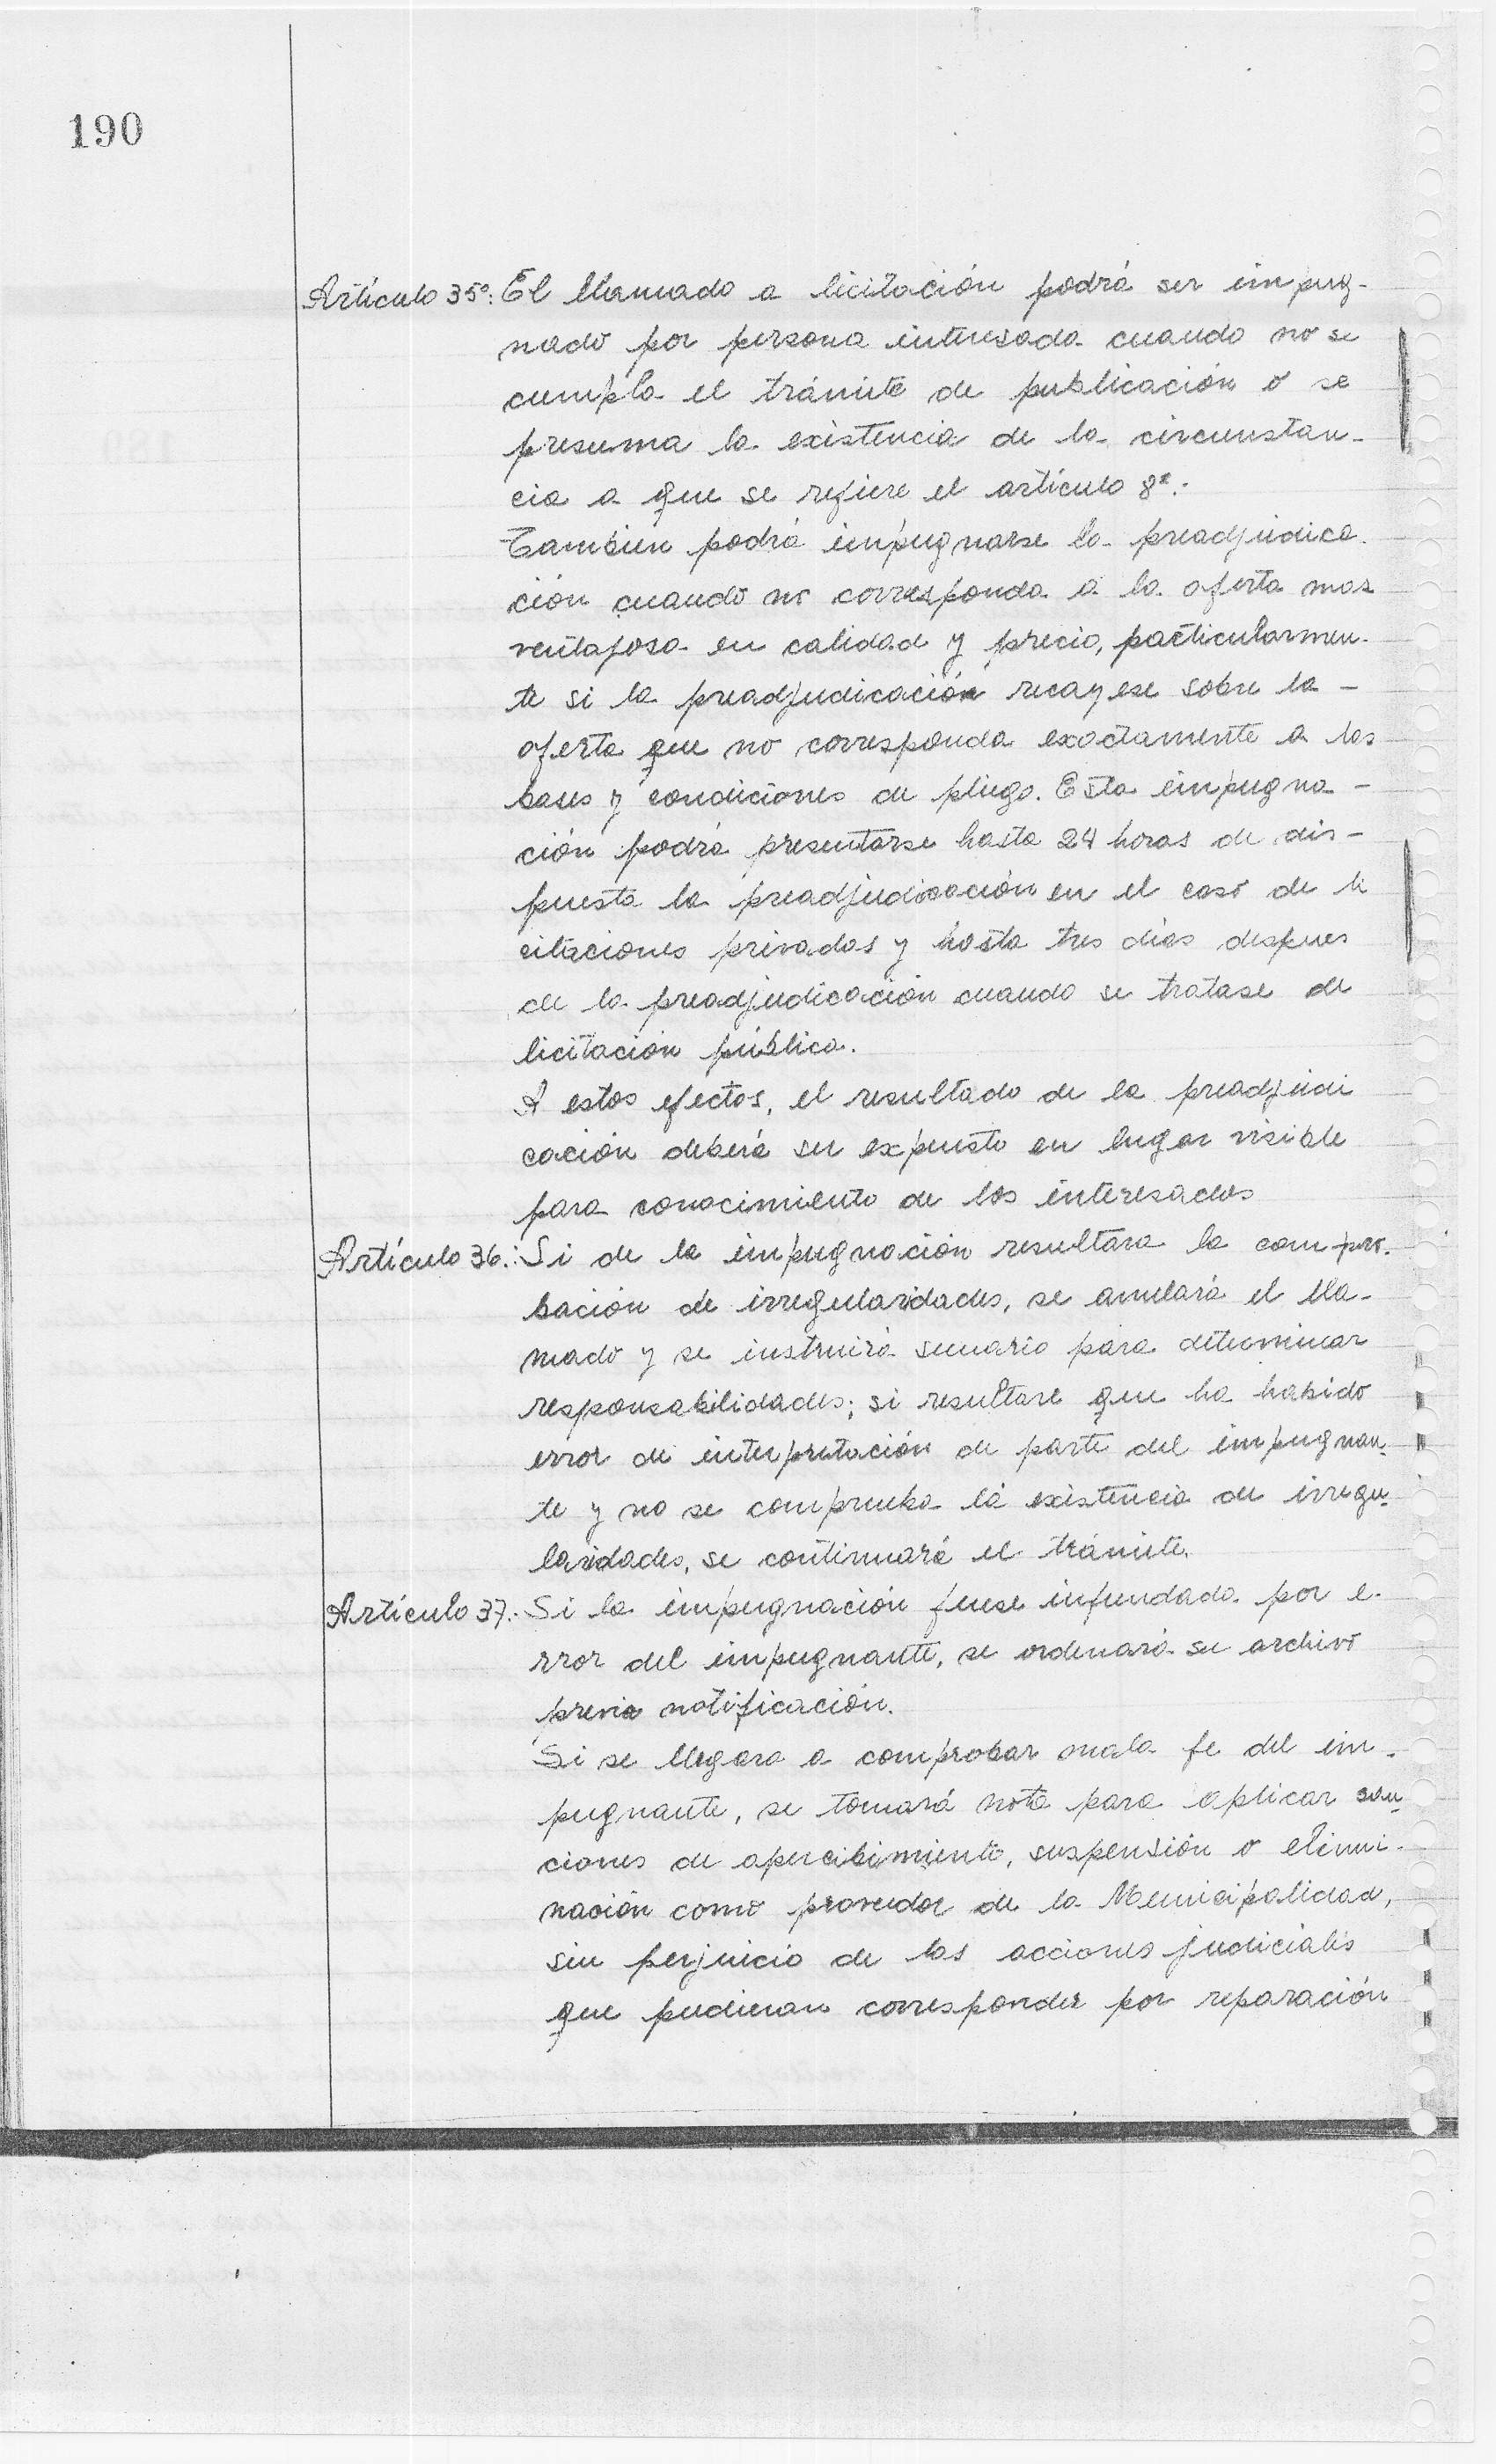 190
Artículo 35º: El llamado a licitación podrá ser impug-
nado por persona interesada cuando no se
cumpla el trámite de publicación o se
presuma la existencia de la circunstan-
cia a que se refiere el artículo 8º.-
Tambien podrá impugnarse la preadjudica-
ción cuando no corresponda a la oferta mas
ventajosa en calidad y precio, particularmen-
te si la preadjudicación recayese sobre la -
oferta que no corresponda exactamente a las
bases y condiciones de pliego. Esta impugna -
ción podrá presentarse hasta 24 horas de dis -
puesta la preadjudicación en el caso de li
citaciones privadas y hasta tres días despues
de la preadjudicación cuando se tratase de
licitación pública.
A estos efectos, el resultado de la preadjudi
cación deberá ser expuesto en lugar visible
para conocimiento de los interesados
Artículo 36.: Si de la impugnación resultara la compro-
bación de irregularidades, se anulará el lla-
mado y se instruirá sumario para determinar
responsabilidades; si resultare que ha habido
error de interpretación de parte del impugnan-
te y no se comprueba la existencia de irregu-
laridades, se continuará el trámite.
Artículo 37.- Si la impugnación fuese infundada por e-
rror del impugnante, se ordenará su archivo
previa notificación.
Si se llegara a comprobar mala fe del im-
pugnante, se tomará nota para aplicar san-
ciones de apercibimiento, suspensión o elimi-
nación como proveedor de la Municipalidad,
sin perjuicio de las acciones judiciales
que pudieran corresponder por reparación